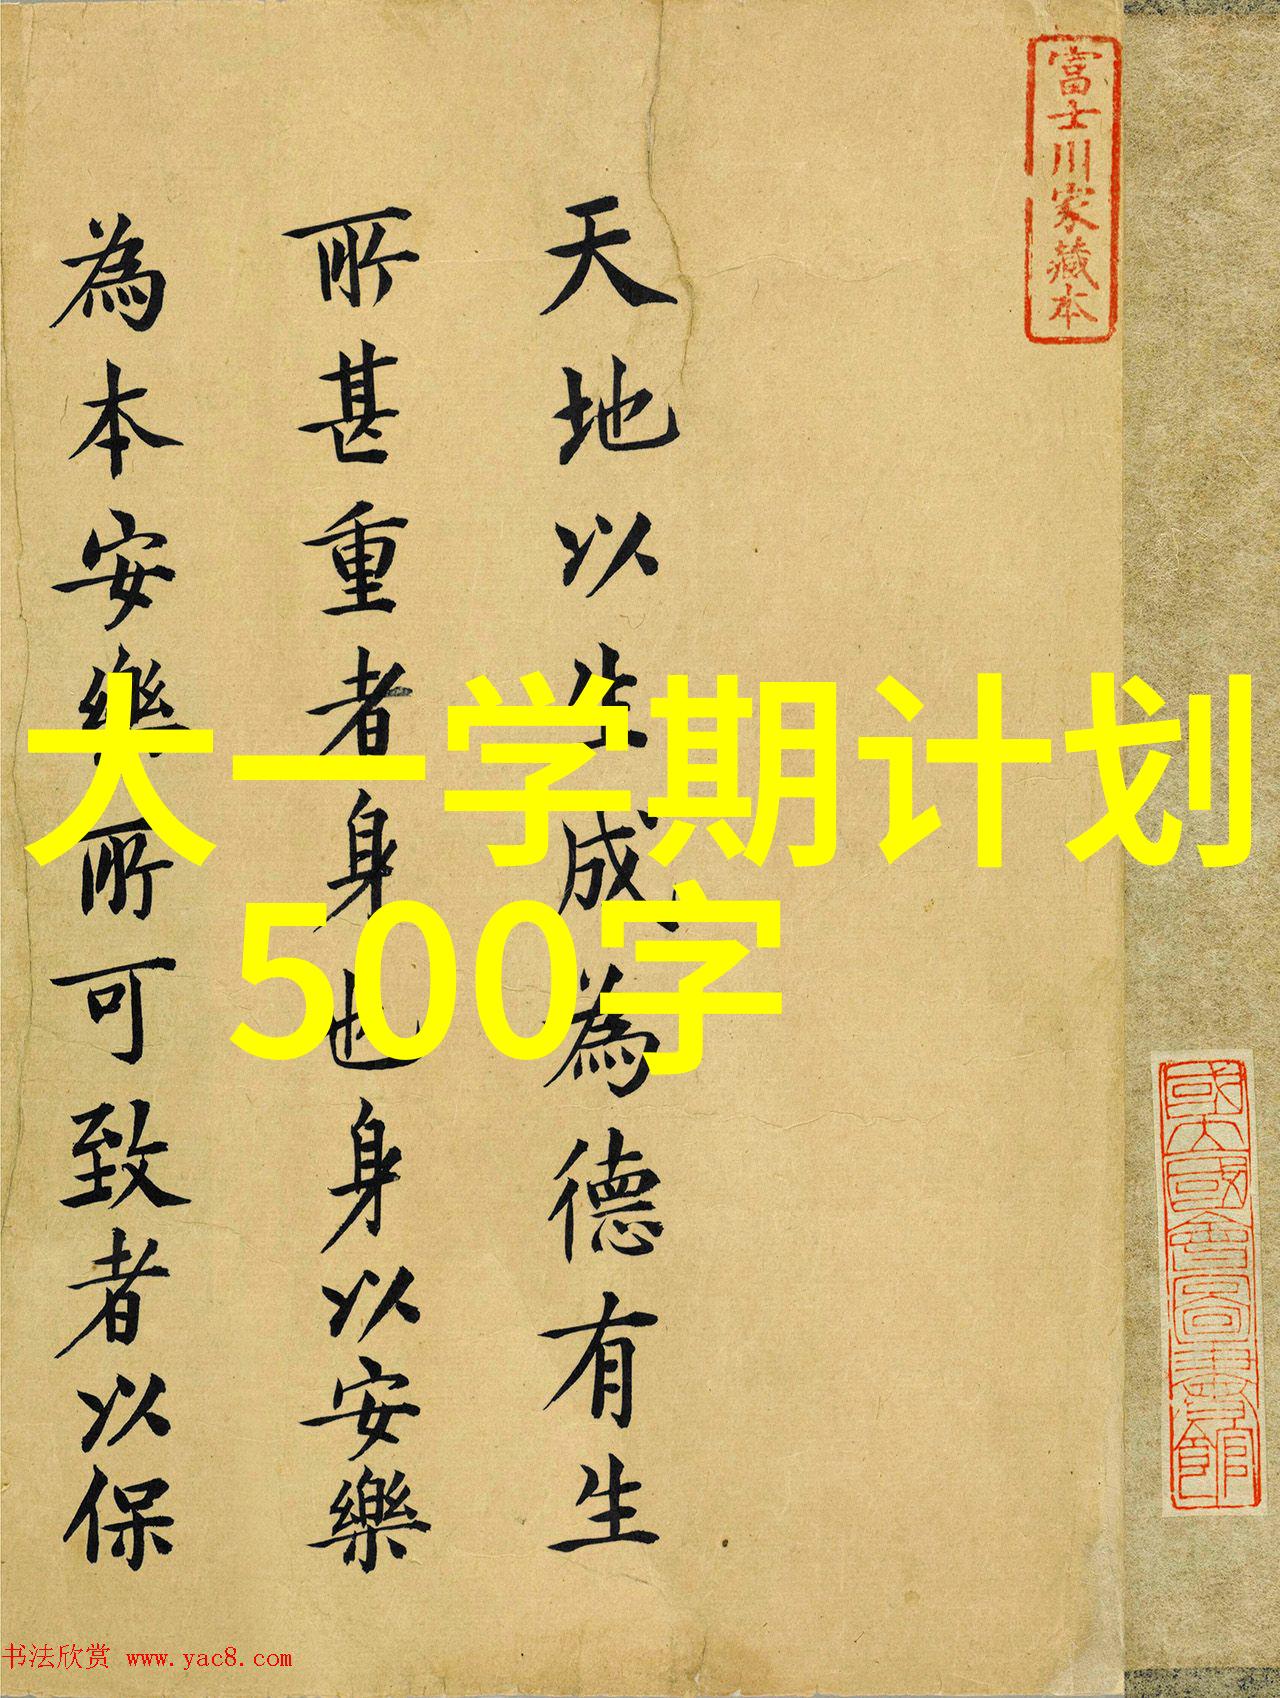 富士川家藏本
天地以生成為德有生
所甚重者身也身以安樂
為本安樂所可致者以保
大一学期计划
500字
國立國會圖書館藏書
书法欣赏 www.yac8.com